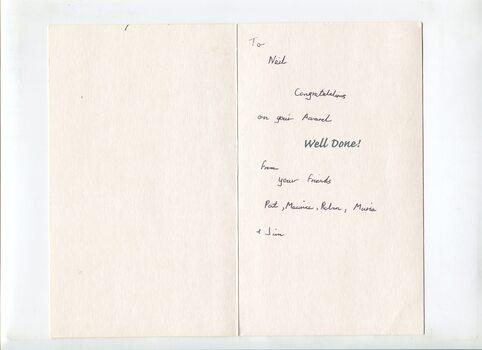 To
Neil
Congratulations
on your Award
Well Done!
from
your Friends
Pat, Maurice, Robin,
& Jim